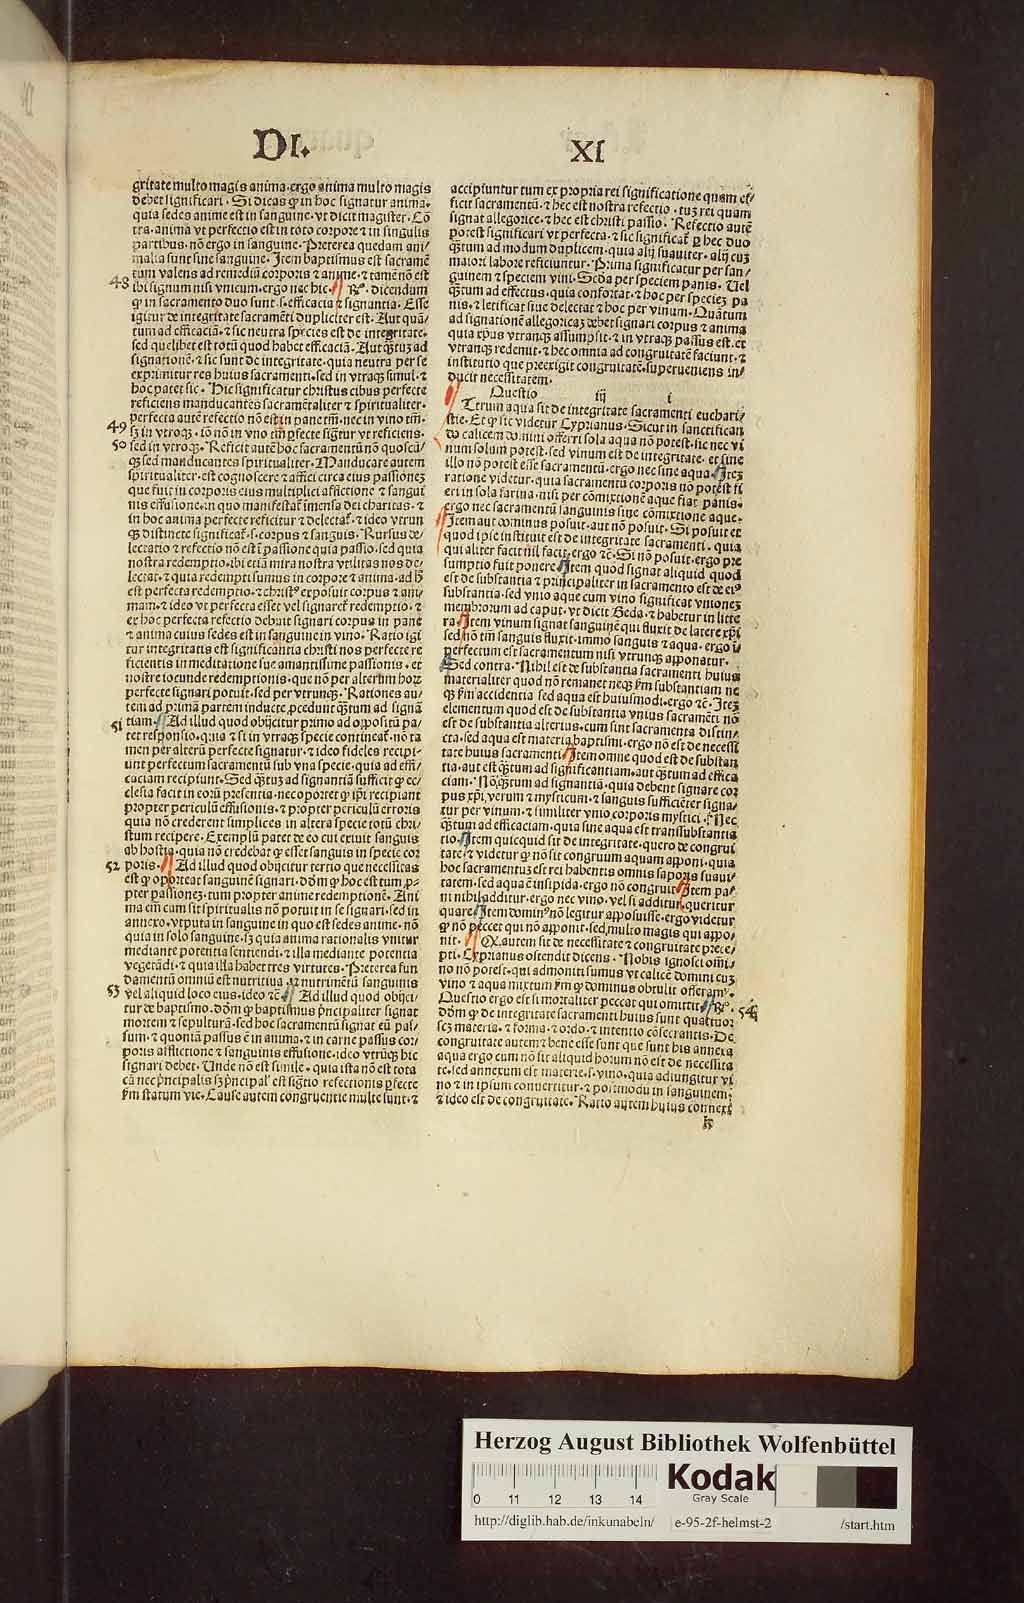 DI.
XI
gritate multo magis anima·ergo anima multo magis
debet significari· Si dicas ꝙ in hoc signatur anima·
quia sedes anime est in sanguine·vt dicit magister· Cō
tra·anima vt perfectio est in toto corpore ⁊ in singulis
partibus·nō ergo in sanguine· Preterea quedam ani/
malia sunt sine sanguine· Item baptismus est sacramē
tum valens ad remediū corporis ⁊ anime·⁊ tamē nō est
48
ibi signum nisi vnicum·ergo nec hic· Rº· dicendum
ꝙ in sacramento duo sunt·s·efficacia ⁊ signantia· Esse
igitur de integritate sacramēti dupliciter est· Aut quā/
tum ad efficaciā·⁊ sic neutra species est de integritate·
sed quelibet est totū quod habet efficaciā· Aut q̄tuꝫ ad
signationē·⁊ sic sunt de integritate·quia neutra per se
exprimitur res huius sacramenti·sed in vtraq̄ simul·⁊
hoc patet sic· Hic significatur christus cibus perfecte
reficiens manducantes sacramētaliter ⁊ spiritualiter·
49
perfecta autē refectio nō est in pane tm̄·nec in vino tm̄·
sꝫ in vtroq̄·iō nō in vno tm̄ ꝑfecte sig̅tur vt reficiens·
50
sed in vtroq̄· Reficit autē hoc sacramentū nō quoscū/
q̄ sed manducantes spiritualiter· Manducare autem
spiritualiter·est cognoscere ⁊ affici circa eius passioneꝫ
que fuit in corporis eius multiplici afflictione ⁊ sangui
nis effusione·in quo manifestat̄ imensa dei charitas·⁊
in hoc anima perfecte reficitur ⁊ delectat̄·⁊ ideo vtrun
q̄ distincte significat̄·s·corpus ⁊ sanguis· Rursus de/
lectatio ⁊ refectio nō est ī passione quia passio·sed quia
nostra redemptio·ibi etiā mira nostra vtilitas nos de/
lectat·⁊ quia redempti sumus in corpore ⁊ anima·ad h̄
est perfecta redemptio·⁊ christº exposuit corpus ⁊ ani/
mam·⁊ ideo vt perfecta esset vel signaret̄ redemptio·⁊
ex hoc perfecta refectio debuit signari corpus in pane
⁊ anima cuius sedes est in sanguine in vino· Ratio igi
tur integritatis est significantia christi nos perfecte re
ficientis in meditatione sue amantissime passionis·et
nostre iocunde redemptionis·que nō per alterum horꝝ
perfecte signari potuit·sed per vtrunq̄· Rationes au/
tem ad primā partem inducte ꝓcedunt q̄tum ad signā
51
tiam· Ad illud quod obijcitur primo ad oppositū pa/
tet responsio·quia ⁊ si in vtraq̄ specie contineat̄·nō ta
men per alterū perfecte signatur·⁊ ideo fideles recipi/
unt perfectum sacramentū sub vna specie·quia ad effi/
caciam recipiunt· Sed q̄tuꝫ ad signantiā sufficit ꝙ ec/
clesia facit in eorū presentia·nec oportet ꝙ ip̄i recipiant
propter periculū effusionis·⁊ propter periculū erroris
quia nō crederent simplices in altera specie totū chri/
stum recipere· Exemplū patet de eo cui exiuit sanguis
ab hostia·quia nō credebat ꝙ esset sanguis in specie cor
52
poris· Ad illud quod obijcitur tertio que necessitas
est ꝙ oporteat sanguinē signari·dōm̄ ꝙ hoc est tum ꝓ/
pter passioneꝫ·tum propter anime redemptionē· Ani
ma em̄ cum sit spiritualis nō potuit in se signari·sed in
annexo·vtputa in sanguine in quo est sedes anime·nō
quia in solo sanguine·sꝫ quia anima rationalis vnitur
mediante potentia sentiendi·⁊ illa mediante potentia
vegetādi·⁊ quia illa habet tres virtutes· Preterea fun
damentū omniū est nutritiua·⁊ nutrimētū sanguinis
53
vel aliquid loco eius·ideo ⁊c̄· Ad illud quod obijci/
tur de baptismo·dōm̄ ꝙ baptismus p̄ncipaliter signat
mortem ⁊ sepulturā·sed hoc sacramentū signat eū pas/
sum·⁊ quoniā passus ē in anima·⁊ in carne passus cor/
poris afflictione ⁊ sanguinis effusione·ideo vtrūq̄ hic
signari debet· Unde nō est simile·quia ista nō est tota
cā nec p̄ncipalis sꝫ p̄ncipal' est sig̅tio refectionis ꝑfecte
ẜm statum vie· Cause autem congruentie multe sunt·⁊
accipiuntur tum ex propria rei significatione quam ef/
ficit sacramentū·⁊ hec est nostra refectio·tuꝫ rei quam
signat allegorice·⁊ hec est christi passio· Refectio autē
potest significari vt perfecta·⁊ sic significat̄ ꝑ hec duo
q̄tum ad modum duplicem·quia alij suauiter·alij cuꝫ
maiori labore reficiuntur· Prima significatur per san/
guinem ⁊ speciem vini· Scd̄a per speciem panis· Uel
q̄tum ad effectus·quia confortat·⁊ hoc per specieꝫ pa
nis·⁊ letificat siue delectat ⁊ hoc per vinum· Quātum
ad signationē allegoricaꝫ debet signari corpus ⁊ anima
quia xp̄us vtranq̄ assumpsit·⁊ in vtraq̄ passus est·et
vtranq̄ redemit·⁊ hec omnia ad congruitatē faciunt·⁊
institutio que preexigit congruitatē·superueniens in/
ducit necessitatem·
Questio iij i
Utrum aqua sit de integritate sacramenti euchari/
stie· Et ꝙ sic videtur Cyprianus· Sicut in sanctifican
do calicem domini offerri sola aqua nō potest·sic nec vi
num solum potest·sed vinum est de integritate·et sine
illo nō potest esse sacramentū·ergo nec sine aqua· Iteꝫ
ratione videtur·quia sacramentū corporis nō potest fi
eri in sola farina·nisi per cōmixtionē aque fiat panis·
ergo nec sacramentū sanguinis sine cōmixtione aque·
Item aut dominus posuit·aut nō posuit· Si posuit et
quod ipse instituit est de integritate sacramenti·quia
qui aliter facit nil facit·ergo ⁊c̄· Si nō posuit·ergo pre
sumptio fuit ponere· Item quod signat aliquid quod
est de substantia ⁊ principaliter in sacramento est de eiº
substantia·sed vnio aque cum vino significat vnioneꝫ
membrorum ad caput·vt dicit Beda·⁊ habetur in litte
ra· Item vinum signat sanguinē qui fluxit de latere xp̄i
sed nō tm̄ sanguis fluxit·immo sanguis ⁊ aqua·ergo ī
perfectum est sacramentum nisi vtrunq̄ apponatur·
Sed contra· Nihil est de substantia sacramenti huius
materialiter quod nō remanet neq̄ ẜm substantiam ne
q̄ ẜm accidentia sed aqua est huiusmodi·ergo ⁊c̄· Iteꝫ
elementum quod est de substantia vnius sacramēti nō
est de substantia alterius·cum sint sacramenta distin/
cta·sed aqua est materia baptismi·ergo nō est de necessi
tate huius sacramenti· Item omne quod est de substan
tia·aut est q̄tum ad significantiam·aut q̄tum ad effica
ciam· Nō q̄tum ad signantiā·quia debent signare cor
pus xp̄i verum ⁊ mysticum·⁊ sanguis sufficiēter signa/
tur per vinum·⁊ similiter vnio corporis mystici· Nec
q̄tum ad efficaciam·quia sine aqua est transsubstantia
tio· Item quicquid sit de integritate·quero de congrui
tate·⁊ videtur ꝙ nō sit congruum aquam apponi·quia
hoc sacramentuꝫ est rei habentis omnis saporis suaui/
tatem·sed aqua ē insipida·ergo nō congruit· Item pa/
ni nihil additur·ergo nec vino·vel si additur·queritur
quare· Item dominº nō legitur apposuisse·ergo videtur
ꝙ nō peccet qui nō apponit·sed multo magis qui appo/
nit· Q autem sit de necessitate ⁊ congruitate prece/
pti· Cyprianus ostendit dicens· Nobis ignosci om̄i/
no nō potest·qui admoniti sumus vt calicē domini cuꝫ
vino ⁊ aqua mixtum ẜm ꝙ dominus obtulit offeramº·
Questio ergo est si mortaliter peccat qui omittit· Rº·
54
dōm̄ ꝙ de integritate sacramenti huius sunt quattuor
scꝫ materia·⁊ forma·⁊ ordo·⁊ intentio cōsecrantis· De
congruitate autem ⁊ bene esse sunt que sunt his annexa
aqua ergo cum nō sit aliquid horum nō est de necessita
te·sed annexum est materie·s·vino·quia adiungitur vi
no ⁊ in ipsum conuertitur·⁊ postmodū in sanguinem·
⁊ ideo est de congruitate· Ratio autem huius connexi
Herzog August Bibliothek Wolfenbüttel
Kodak
Gray Scale
0 11 12 13 14
http://diglib.hab.de/inkunabeln/ e-95-2f-helmst-2 /start.htm